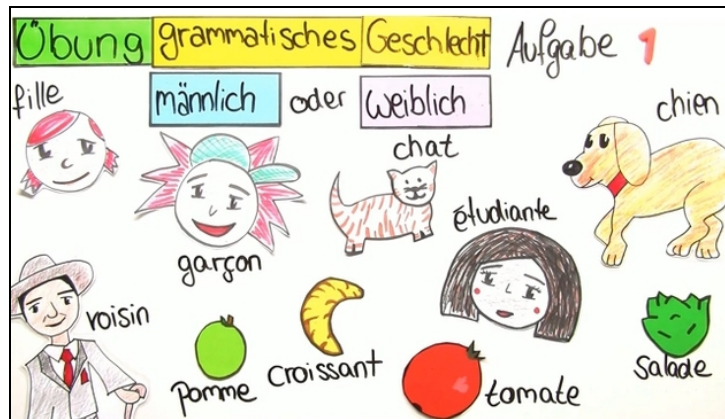 Übung grammatisches Geschlecht Aufgabe 1
fille männlich oder weiblich chien
chat
étudiante
garçon
voisin
pomme croissant tomate salade